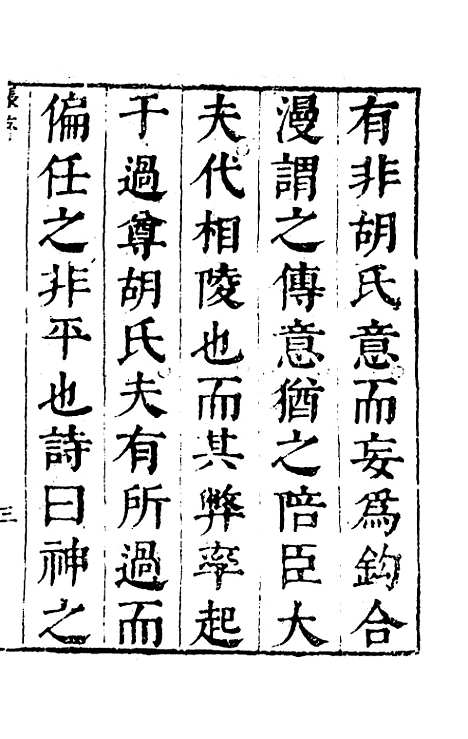 有非胡氏意而妄爲鈎合
漫謂之傳意猶之陪臣大
夫代相陵也而其弊率起
于過尊胡氏夫有所過而
偏任之非平也詩曰神之
三